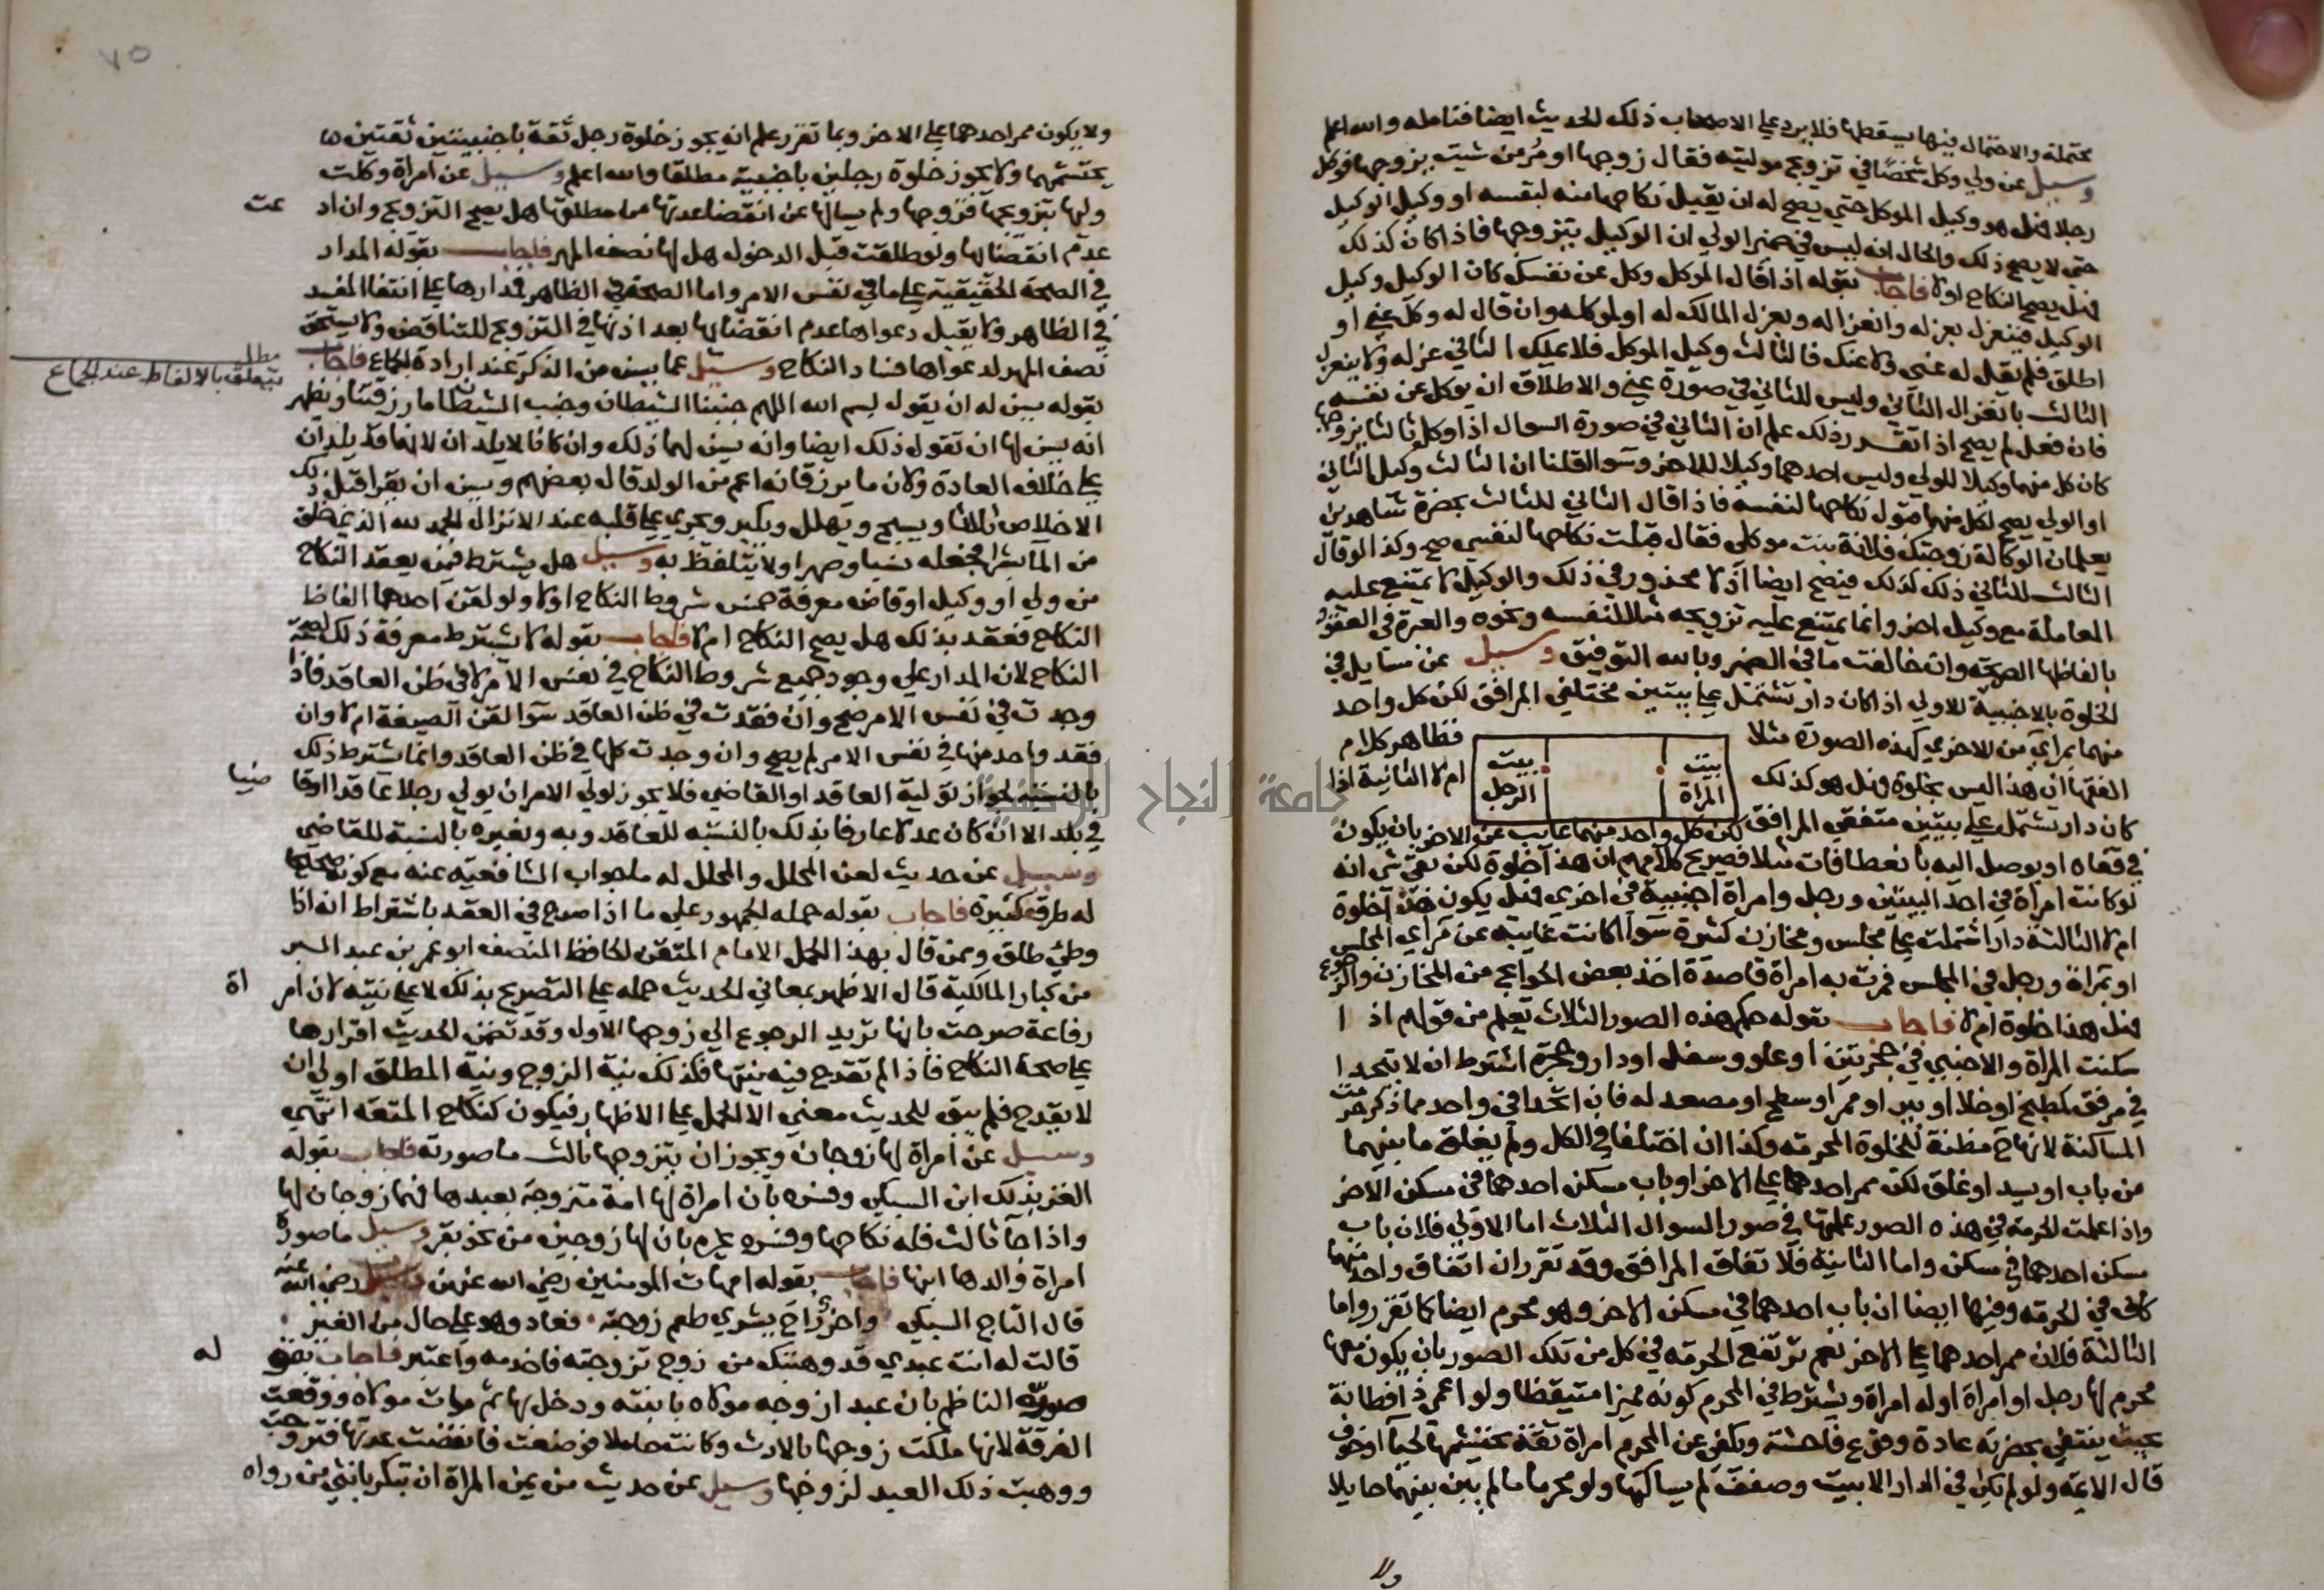 محتملة والاحتمال فيها يسقطها فلا يرد على الاصحاب ذلك الحديث ايضا فتامله والله اعلم
وسيل عن ولي وكل شخصا في تزويج موليته فقال زوجها او مر من شيت يزوجها فوكل
رجلا فهل هو وكيل الموكل حتي يصح له ان يقبل نكاحها منه لنفسه او وكيل الوكيل
حتي لا يصح ذلك والحال انه ليس في ضمير الولي ان الوكيل يتزوجها فاذا كان كذلك
فهل يصح النكاح اولا فاجاب بقوله اذا قال الموكل وكل عن نفسك كان الوكيل وكيل
الوكيل فينعزل بعزله وانعزاله وبعزل المالك له او لموكله وان قال له وكل عني او
اطلق فلم يقل له عني ولا عنك فالثالث وكيل الموكل فلا يملك الثاني عزله ولا ينعزل
الثالث بانعزال الثاني وليس للثاني في صورة عني والاطلاق ان يوكل عن نفسه
فان فعل لم يصح اذا تقرر ذلك علم ان الثاني في صورة السوال اذا وكل ثالثا يزوجها
كان كل منهما وكيلا للولي وليس احدهما وكيلا للاخر وسوا قلنا ان الثالث وكيل الثاني
او الولي يصح لكل منهما قبول نكاحها لنفسه فاذا قال الثاني للثالث بحضرة شاهدين
يعلمان الوكالة زوجتك فلانة بنت موكلي فقال قبلت نكاحها لنفسي صح وكذا لو قال
الثالث للثاني ذلك كذلك فيصح ايضا اذ لا محذور في ذلك والوكيل لا يمتنع عليه
المعاملة مع وكيل اخر وانما يمتنع عليه تزويجه مثلا لنفسه ونحوه والعبرة في العقود
بالفاظها الصريحة وان خالفت ما في الضمير وبالله التوفيق وسيل عن مسايل في
الخلوة بالاجنبية الاولي اذا كان دار تشتمل علي بيتين مختلفي المرافق لكن كل واحد
منهما بمراي من الاخري كهذه الصورة مثلا
بيت
المراة
بيت
الرجل
فظاهر كلام
الفقها ان هذا ليس بخلوة فهل هو كذلك
ام لا الثانية اذا
كان دار تشتمل علي بيتين متفقي المرافق لكن كل واحد منهما غايب عن الاخر بان يكون
في قفاه او يوصل اليه بانعطافات مثلا فصريح كلامهم ان هذا خلوة لكن بقي شي انه
لو كانت امراة في احد البيتين ورجل وامراة اجنبية في اخري فهل يكون هذا خلوة
ام لا الثالثة دار اشتملت علي مجلس ومخازن كثيرة سوا كانت غايبة عن مراي المجلس
او بمراة ورجل في المجلس فمرت به امراة قاصدة اخذ بعض الحوايج من المخازن والرجوع
فهل هذا خلوة ام لا فاجاب بقوله حكم هذه الصور الثلاث يعلم من قولهم اذ ا
سكنت المراة والاجنبي في حجرتين او علو وسفل او دار وحجرة اشترط ان لا يتحدا
في مرفق كمطبخ او خلا او بير او ممر او سطح او مصعد له فان اتحدا في واحد مما ذكر حرمت
المساكنة لانها ح مظنة للخلوة المحرمة وكذا ان اختلفا في الكل ولم يغلق ما بينهما
من باب او يسد او غلق لكن ممر احدهما علي الاخر او باب مسكن احدهما في مسكن الاخر
واذا علمت الحرمة في هذه الصور علمتها في صور السوال الثلاث اما الاولي فلان باب
مسكن احدهما في مسكن واما الثانية فلاتفاق المرافق وقد تقرر ان اتفاق واحد منهما
كافي في الحرمة وفيها ايضا ان باب احدهما في مسكن الاخر وهو محرم ايضا كما تقرر واما
الثالثة فلان ممر احدهما علي الاخر نعم ترتفع الحرمة في كل من تلك الصور بان يكون معها
محرم لها رجل او امراة او له امراة ويشترط في المحرم كونه مميزا متيقظا ولو اعمي ذا فطانة
بحيث ينتفي بحضرته عادة وقوع فاحشة ويكفي عن المحرم امراة ثقة تحتشمها لحيا او خوف
قال الايمة ولو لم تكن في الدار الا بيت وصفف لم يساكنها ولو محرما ما لم يبن بينهما حايلا
ولا
٧٥
ولا يكون ممر احدهما علي الاخر وبما تقرر علم انه يجوز خلوة رجل ثقة باجنبيتين ثقتين ها
يحتشمهما ولا يجوز خلوة رجلين باجنبية مطلقا والله اعلم وسيل عن امراة وكلت
وليها بتزويجها فزوجها ولم يسالها عن انقضا عدتها من مطلقها هل يصح التزويج وان اد عت
عدم انقضايها ولو طلقت قبل الدخول هل لها نصف المهر فاجاب بقوله المدار
في الصحة الحقيقية علي ما في نفس الامر واما الصحة في الظاهر فمدارها علي انتفا المفسد
في الظاهر ولا يقبل دعواها عدم انقضايها بعد اذنها في التزويج للتناقض ولا يستحق
نصف المهر لدعواها فساد النكاح وسيل عما يسن من الذكر عند ارادة الجماع فاجاب
مطلب
يتعلق بالالفاظ عند الجماع
بقوله يسن له ان يقول بسم الله اللهم جنبنا الشيطان وجنب الشيطان ما رزقتنا ويظهر
انه يسن لها ان تقول ذلك ايضا وانه يسن لهما ذلك وان كانا لا يلدان لانهما قد يلدان
علي خلاف العادة ولان ما يرزقانه اعم من الولد قال بعضهم ويسن ان يقرا قبل ذلك
الاخلاص ثلاثا ويسبح ويهلل ويكبر ويجري علي قلبه عند الانزال الحمد لله الذي خلق
من الما بشرا فجعله نسبا وصهرا ولا يتلفظ به وسيل هل يشترط فيمن يعقد النكاح
من ولي او وكيل او قاض معرفة جمس شروط النكاح اولا ولو لقن احدهما الفاظ
النكاح فعقد بذلك هل يصح النكاح ام لا فاجاب بقوله لا يشترط معرفة ذلك لصحة
النكاح لان المدار علي وجود جميع شروط النكاح في نفس الامر لا في ظن العاقد فاذا
وجدت في نفس الامر صح وان فقدت في ظن العاقد سوا لقن الصيغة ام لا وان
فقد واحد منها في نفس الامر لم يصح وان وجدت كلها في ظن العاقد وانما يشترط ذلك
بالنسبة لجواز تولية العاقد او القاضي فلا يجوز لولي الامر ان يولي رجلا عاقدا او قا ضيا
في بلد الا ان كان عدلا عارفا بذلك بالنسبة للعاقد وبه وبغيره بالنسبة للقاضي
وسيل عن حديث لعن المحلل والمحلل له ما جواب الشافعية عنه مع كونه صحيحا
له طرق كثيرة فاجاب بقوله حمله الجمهور علي ما اذا صرح في العقد باشتراط انه اذا
وطي طلق وممن قال بهذا الحمل الامام المتقن الحافظ المنصف ابو عمر بن عبد البر
من كبار المالكية قال الاظهر بمعاني الحديث حمله علي التصريح بذلك لا علي نيته لان امر اة
رفاعة صرحت بانها تريد الرجوع الي زوجها الاول وقد تضمن الحديث اقرارها
علي صحة النكاح فاذا لم تقدح فيه نيتها فكذلك نية الزوج ونية المطلق اولي ان
لا يقدح فلم يبق للحديث معني الا الحمل علي الاظهار فيكون كنكاح المتعة انتهي
وسيل عن امراة لها زوجان ويجوز ان يتزوجها ثالث ما صورته فاجاب بقوله
الغز بذلك ابن السبكي وفسره بان امراة لها امة متزوجة بعبدها فهما زوجان لها
واذا جا ثالث فله نكاحها وفسره غيره بان لها زوجين من نحو بقر وسيل ما صورة
امراة والدها ابنها فاجاب بقوله امهات المومنين رضي الله عنهن وسيل رضي الله عنه
قال التاج السبكي واخر راح يشتري طعم زوجة فعاد وهو علي حال من الغير
قالت له انت عبدي قد وهبتك من زوج تزوجته فاخدمه واعتبر فاجاب بقو له
صورة الناظم بان عبدا زوجه مولاه بابنته ودخل بها ثم مات مولاه ووقعت
الفرقة لانها ملكت زوجها بالارث وكانت حاملا فوضعت فانقضت عدتها فتزوجت
ووهبت ذلك العبد لزوجها وسيل عن حديث من يمن المراة ان تبكر بانثي من رواه
جامعة النجاح الوطنية